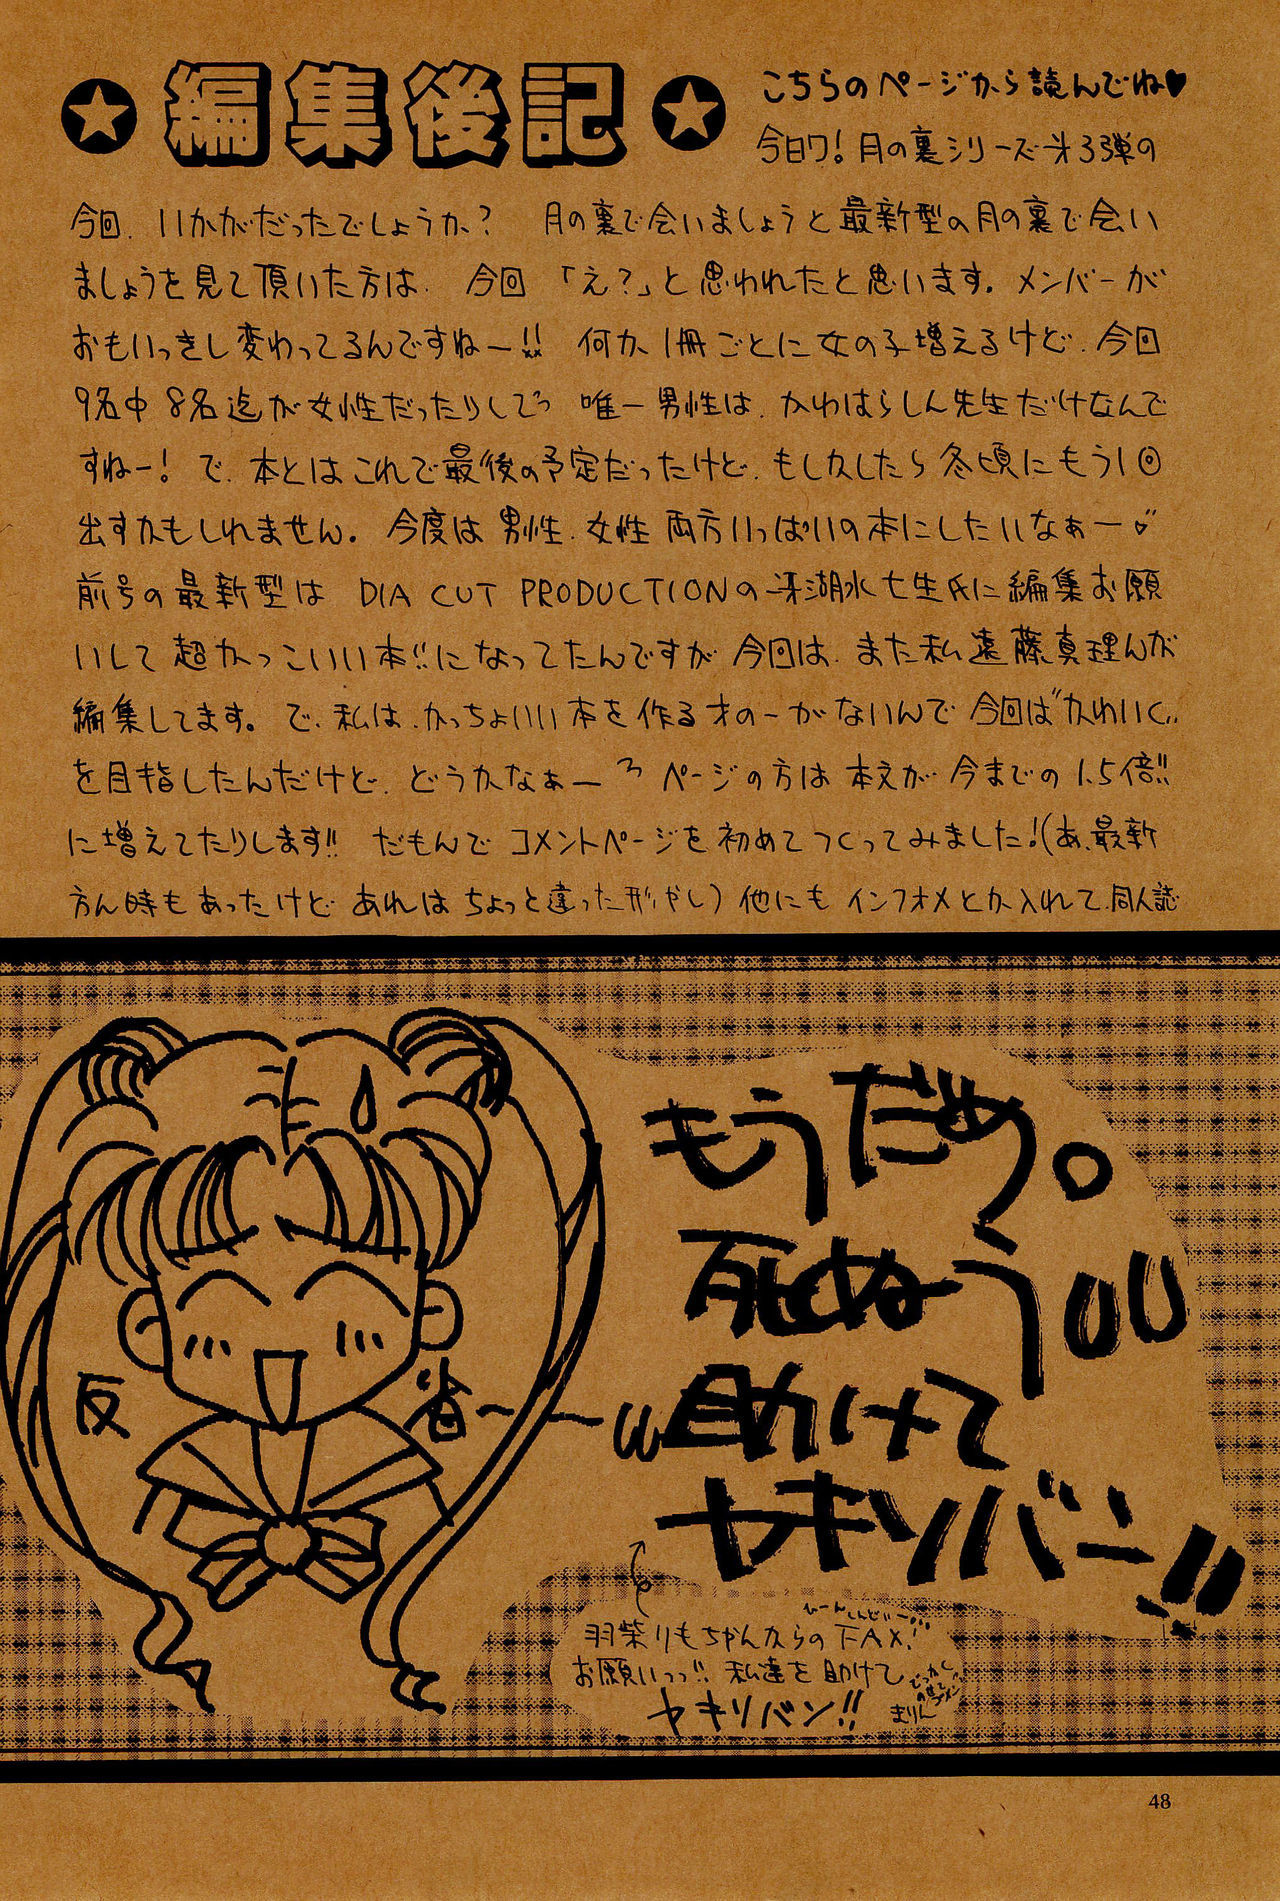 編集後記
こちらのページから読んでね♥
今日ワ!月の裏シリーズ第3弾の
今回、いかがだったでしょうか? 月の裏で会いましょうと最新型の月の裏で会い
ましょうを見て頂いた方は、今回「え?」と思われたと思います。メンバーが
おもいっきし変わってるんですねー!! 何か1冊ごとに女の子増えるけど、今回
9名中8名迄が女性だったりしてっ 唯一男性は、かわはらしん先生だけなんで
すねー! で、本とはこれで最後の予定だったけど、もしかしたら冬頃にもう1回
出すかもしれません。今度は男性、女性両方いっぱいの本にしたいなぁー♡
前号の最新型は DIA CUT PRODUCTIONの冴湖水七生氏に編集お願
いして超かっこいい本!!になってたんですが今回は、また私遠藤真理んが
編集してます。で、私は、かっちょいい本を作る才のーがないんで今回は"かわいく"
を目指したんだけど、どうかなぁーっ ページの方は本文が今までの1.5倍!!
に増えてたりします!! だもんでコメントページを初めてつくってみました!(あ、最新
方ん時もあったけどあれはちょっと違った形やし)他にもインフォメとか入れて、同人誌
もうだめ。
死ぬーう
助けて
ヤキソバーン!!
反省〜〜〜
羽柴りもちゃんからのFAX!
ひーんしんどいー
お願いっっ!! 私達を助けて
ヤキソバン!!
でっかく
のせて
まりん
ゴメン
48